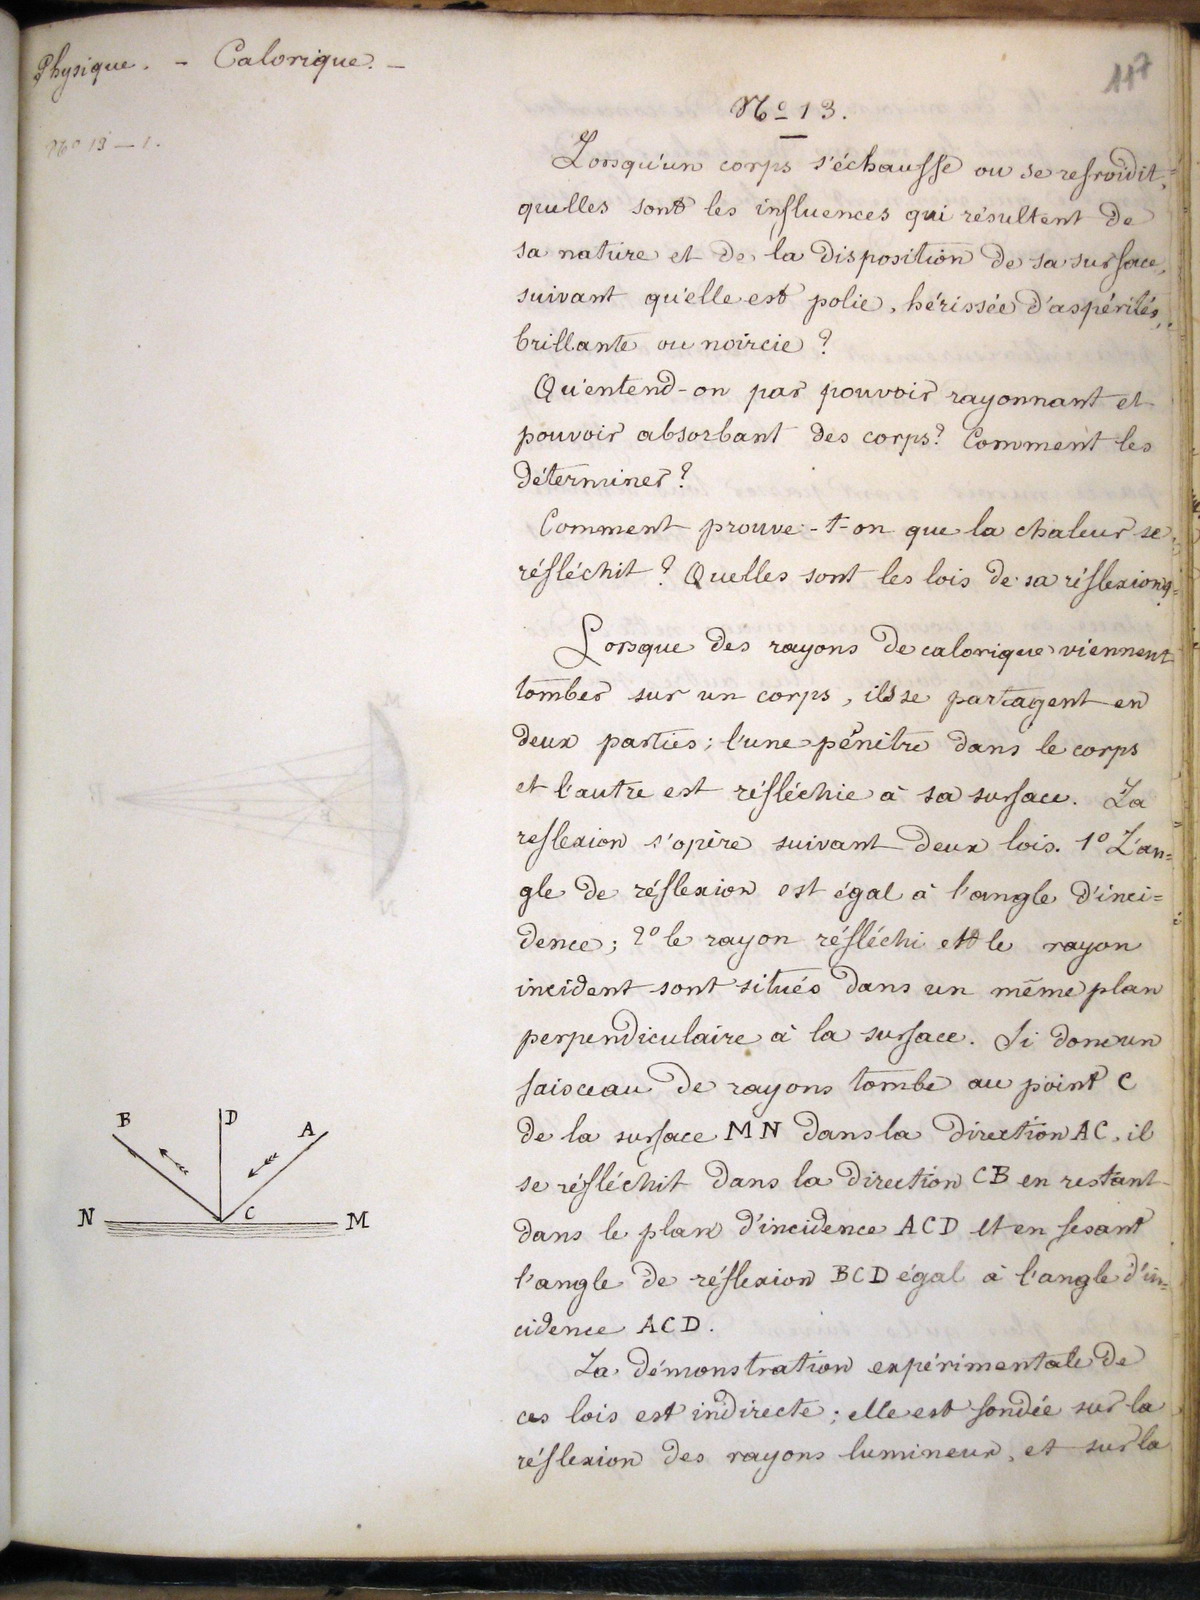 Physique. - Calorique. -
117
No 13 - 1.
No 13.
Lorsqu'un corps s'échauffe ou se refroidit,
quelles sont les influences qui résultent de
sa nature et de la disposition de sa surface,
suivant qu'elle est polie, hérissée d'aspérités,
brillante ou noircie ?
Qu'entend-on par pouvoir rayonnant et
pouvoir absorbant des corps ? Comment les
déterminer ?
Comment prouve-t-on que la chaleur se
réfléchit ? Quelles sont les lois de sa réflexion ?
Lorsque des rayons de calorique viennent
tomber sur un corps, ils se partagent en
deux parties ; l'une pénètre dans le corps
et l'autre est réfléchie à sa surface. La
reflexion s'opère suivant deux lois. 1o L'an=
gle de réflexion est égal à l'angle d'inci=
dence ; 2o le rayon réfléchi et le rayon
incident sont situés dans un même plan
perpendiculaire à la surface. Si donc un
faisceau de rayons tombe au point C
de la surface MN dans la direction AC, il
se réfléchit dans la direction CB en restant
dans le plan d'incidence ACD et en fesant
l'angle de réflexion BCD égal à l'angle d'in=
cidence ACD.
La démonstration expérimentale de
ces lois est indirecte ; elle est fondée sur la
réflexion des rayons lumineux, et sur la
B D A
N C M